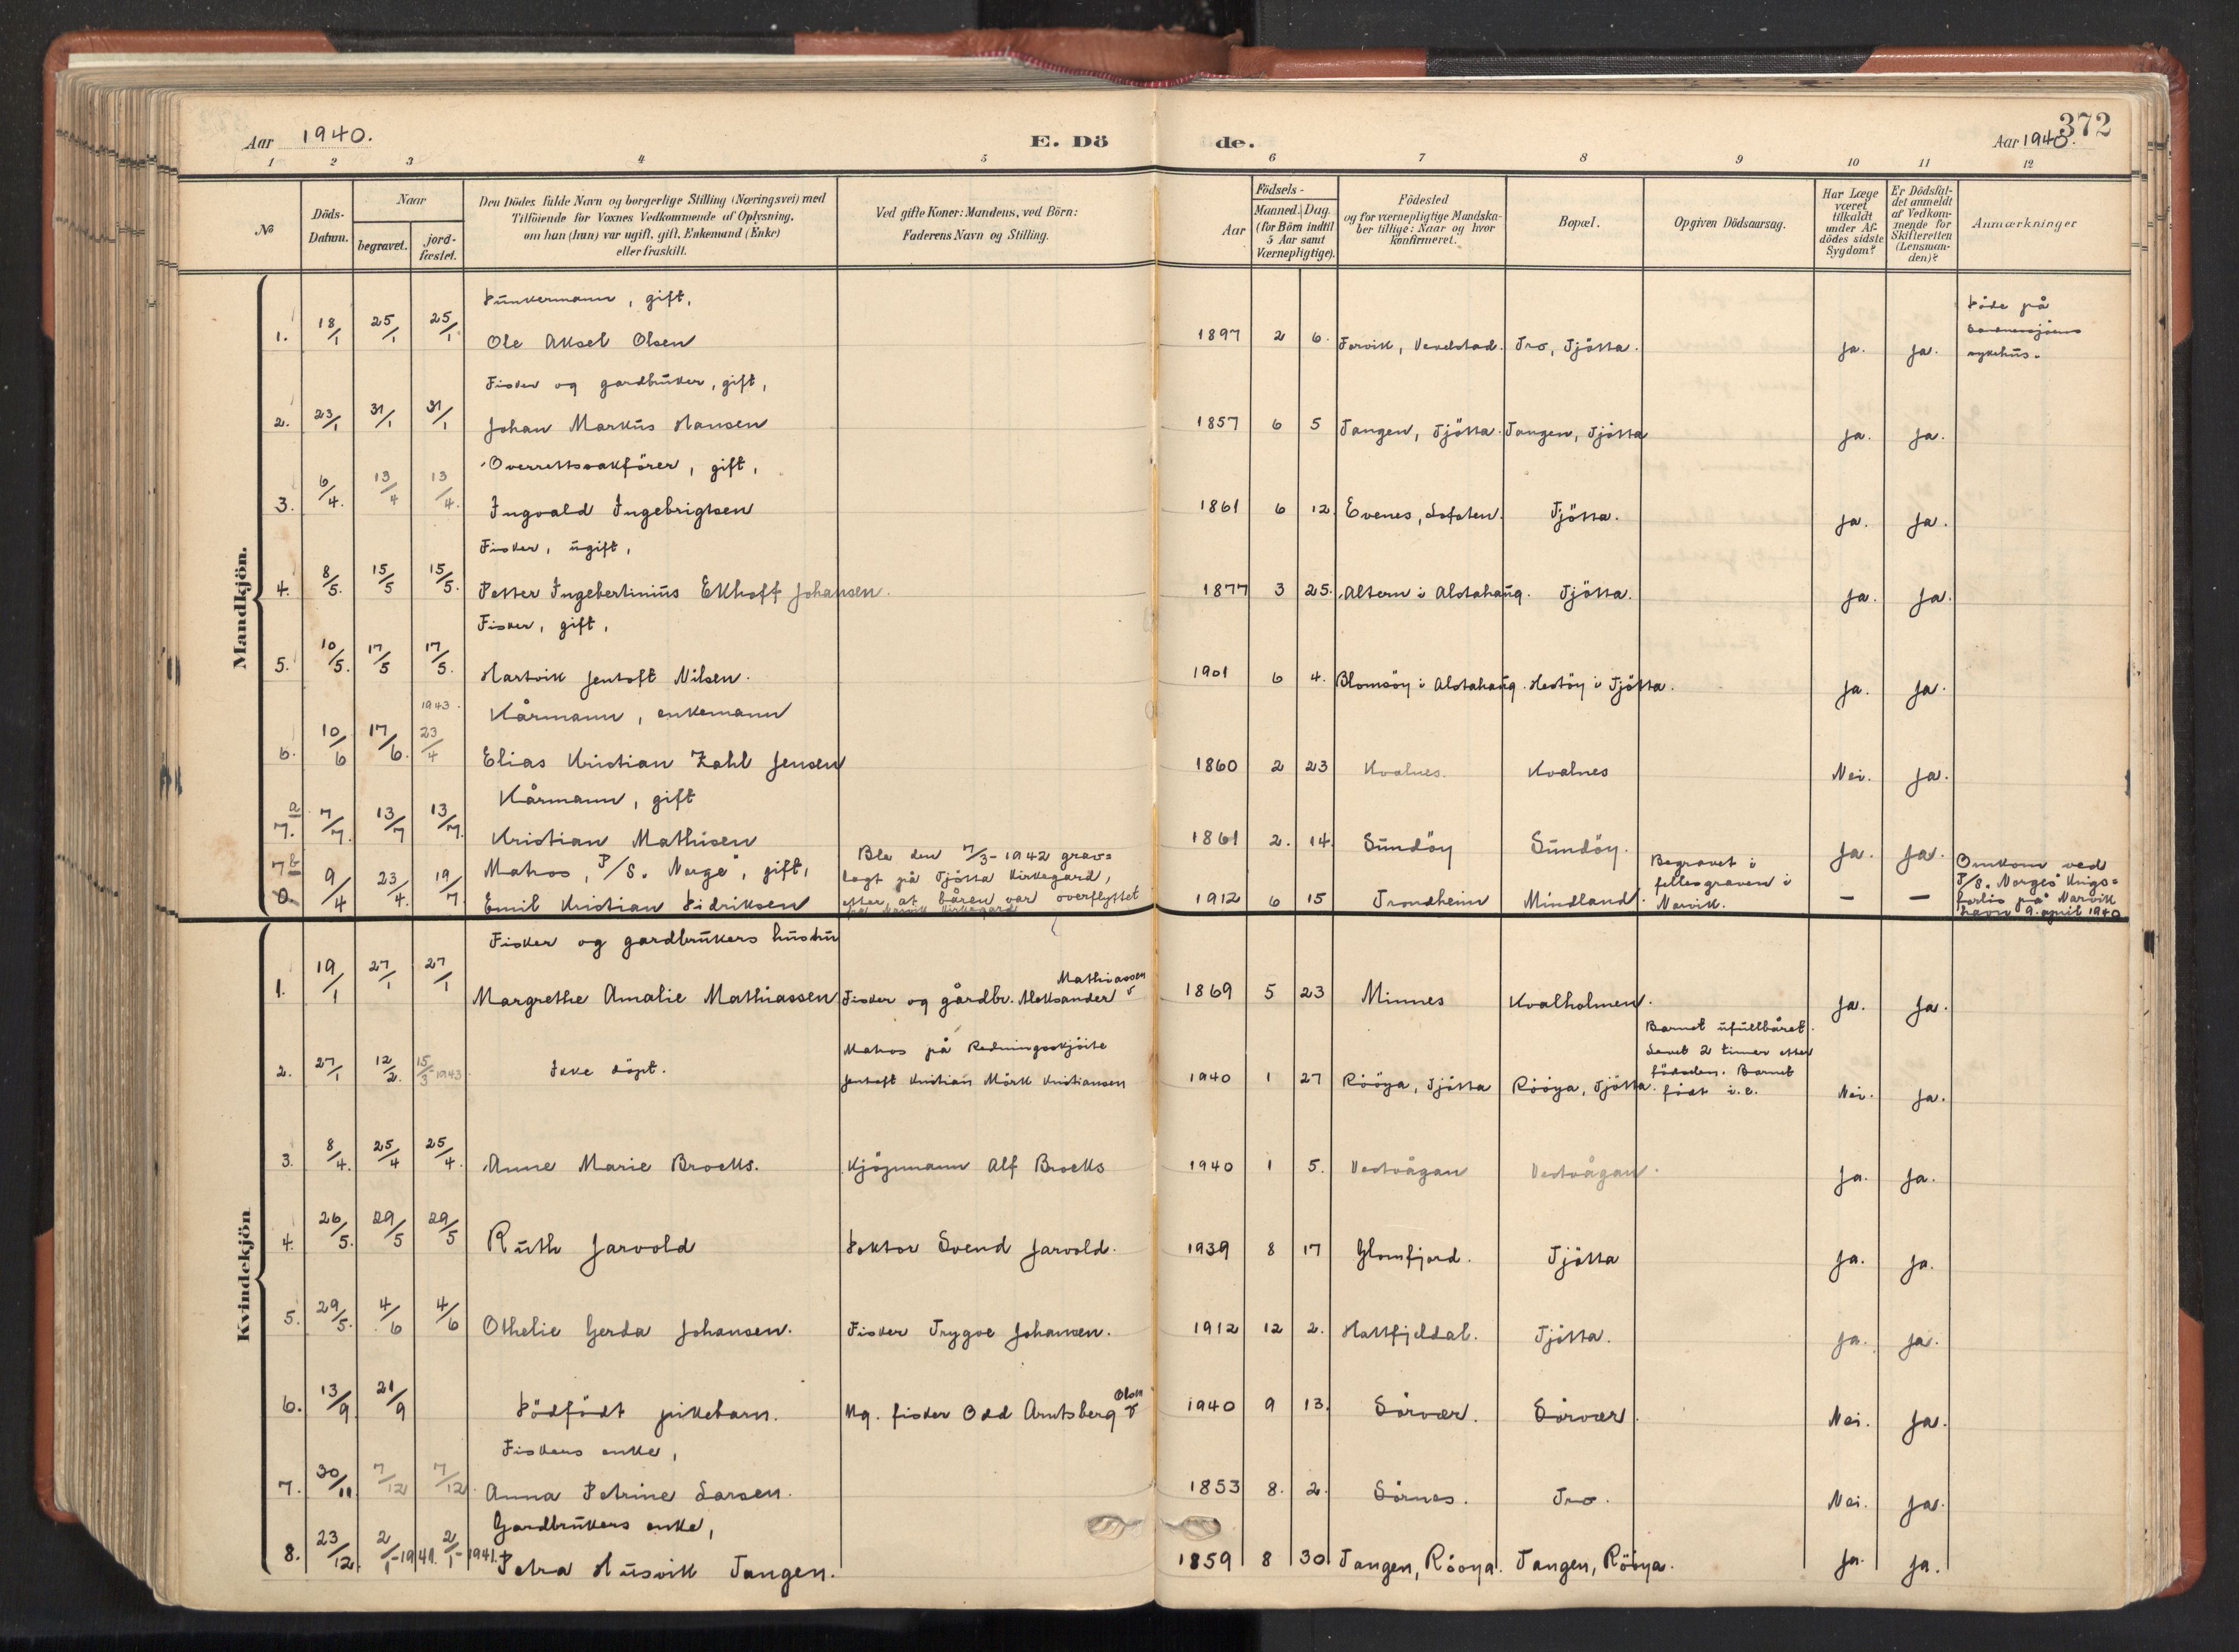 372
Aar 1940.
E. Dö de.
Aar 1940.
1 2 3 4 5 6 7 8 9 10 11 12
No
Döds-Datum.
Naar
begravet.
jord-fæstet.
Den Dödes fulde Navn og borgerlige Stilling (Næringsvei) med
Tilföiende for Voxnes Vedkommende af Oplysning,
om han (hun) var ugift, gift, Enkemand (Enke)
eller fraskilt.
Ved gifte Koner: Mandens, ved Börn:
Faderens Navn og Stilling.
Födsels-
Aar
Maaned. Dag.
(for Börn indtil
5 Aar samt
Værnepligtige).
Födested
og for værnepligtige Mandska-
ber tillige: Naar og hvor
konfirmeret.
Bopæl.
Opgiven Dödsaarsag.
Har Læge
været
tilkaldt
under Af-
dödes sidste
Sygdom?
Er Dödsfal-
det anmeldt
af Vedkom-
mende for
Skifteretten
(Lensman-
den)?
Anmærkninger
Mandkjön.
Bunkermann, gift,
1. 18/1 25/1 25/1 Ole Aksel Olsen 1897 2 6. Forvik, Vevelstad. Tro, Tjötta. Ja. Ja.
Döde på
Sandnessjöens
sykehus.
Fisker og gardbruker, gift,
2. 23/1 31/1 31/1 Johan Markus Hansen 1857 6 5 Tangen, Tjötta. Tangen, Tjötta Ja. Ja.
Overrettssakförer, gift,
3. 6/4. 13/4 13/4. Ingvald Ingebrigtsen 1861 6 12 Evenes, Lofoten. Tjötta. Ja. Ja.
Fisker, ugift,
4. 8/5. 15/5 15/5. Petter Ingebertinius Ekhoff Johansen. 1877 3 25. Altern i Alstahaug. Tjötta. Ja. Ja.
Fisker, gift,
5. 10/5. 17/5 17/5. Hartvik Jentoft Nilsen. 1901 6 4. Blomsöy i Alstahaug. Hestöy i Tjötta. Ja. Ja.
1943. Kårmann, enkemann
6. 10/6 17/6. 23/4 Elias Kristian Zahl Jensen 1860 2 23 Kvalnes. Kvalnes Nei. Ja.
Kårmann, gift
7. a 7/7. 13/7 13/7. Kristian Mathisen 1861 2. 14. Sundöy Sundöy. Ja. Ja.
7b 9/4 23/4. 19/7. Matros, P/S. "Norge", gift,
Emil Kristian Didriksen
Ble den 7/3-1942 grav=
lagt på Tjötta Kirkegard,
etter at båren var overflyttet
fra Narvik Kirkegard
1912 6 15 Trondheim Mindland.
Begravet i
fellesgraven i
Narvik.
— —
Omkom ved
P/S. "Norges" krigs=
forlis på Narvik
havn 9. april 1940
Kvindekjön
Fisker og gardbrukers hustru
1. 19/1 27/1 27/1 Margrethe Amalie Mathiassen Fisker og gårdbr. Aleksander Mathiassen 1869 5 23 Minnes Kvalholmen. Ja. Ja.
2. 27/1 12/2. 15/3-1943 Ikke döpt.
Matros på Redningsskjöite
Jentoft Kristian Mörk Kristiansen
1940 1 27 Rööya, Tjötta Rööya, Tjötta.
Barnet ufullbåret.
Levet 2 timer etter
födselen. Barnet
födt i.e.
Nei. Ja.
3. 8/4. 25/4 25/4. Anne Marie Brocks. Kjöpmann Alf Brocks 1940 1 5. Vestvågan Vestvågan. Ja. Ja.
4. 26/5. 29/5 29/5 Ruth Jarvold Doktor Svend Jarvold. 1939 8 17 Glomfjord. Tjötta Ja. Ja.
5. 29/5. 4/6 4/6 Othelie Gerda Johansen. Fisker Trygve Johansen. 1912 12 2. Hattfjeldal. Tjötta. Ja. Ja.
6. 13/9. 21/9 Dödfödt pikebarn. Ug. fisker Odd Arntsberg Olsen 1940 9 13. Sörvær. Sörvær. Nei. Ja.
Fiskers enke,
7. 30/11. 7/12 7/12. Anna Petrine Larsen. 1853 8. 2. Sörnes. Tro. Nei. Ja.
Gardbrukers enke,
8. 23/12. 2/1-1941. 2/1-1941. Petra Husvik Tangen. 1859 8 30 Tangen, Rööya. Tangen, Rööya. Ja. Ja.